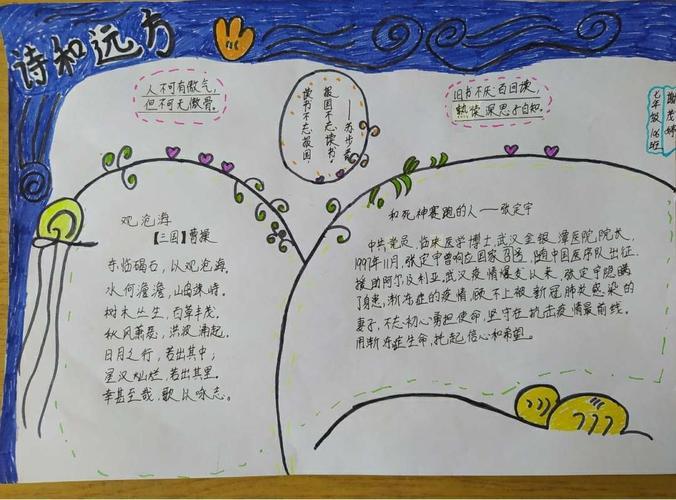 诗和远方
人不可有傲气，
但不可无傲骨。
报国不忘读书。
读书不忘报国，
——苏步青
旧书不厌百回读，
熟读深思子自知。
七年级106班
观沧海
【三国】曹操
东临碣石，以观沧海。
水何澹澹，山岛竦峙。
树木丛生，百草丰茂。
秋风萧瑟，洪波涌起。
日月之行，若出其中；
星汉灿烂，若出其里。
幸甚至哉，歌以咏志。
和死神赛跑的人——张定宇
中共党员，临床医学博士，武汉金银潭医院，院长，
1997年11月，张定宇曾响应国家召唤，随中国医疗队出征，
援助阿尔及利亚。武汉疫情爆发以来，张定宇隐瞒
了身患，渐冻症的疫情，顾不上被新冠肺炎感染的
妻子，不忘初心勇担使命，坚守在抗击疫情最前线。
用渐冻症生命，托起信心和希望。